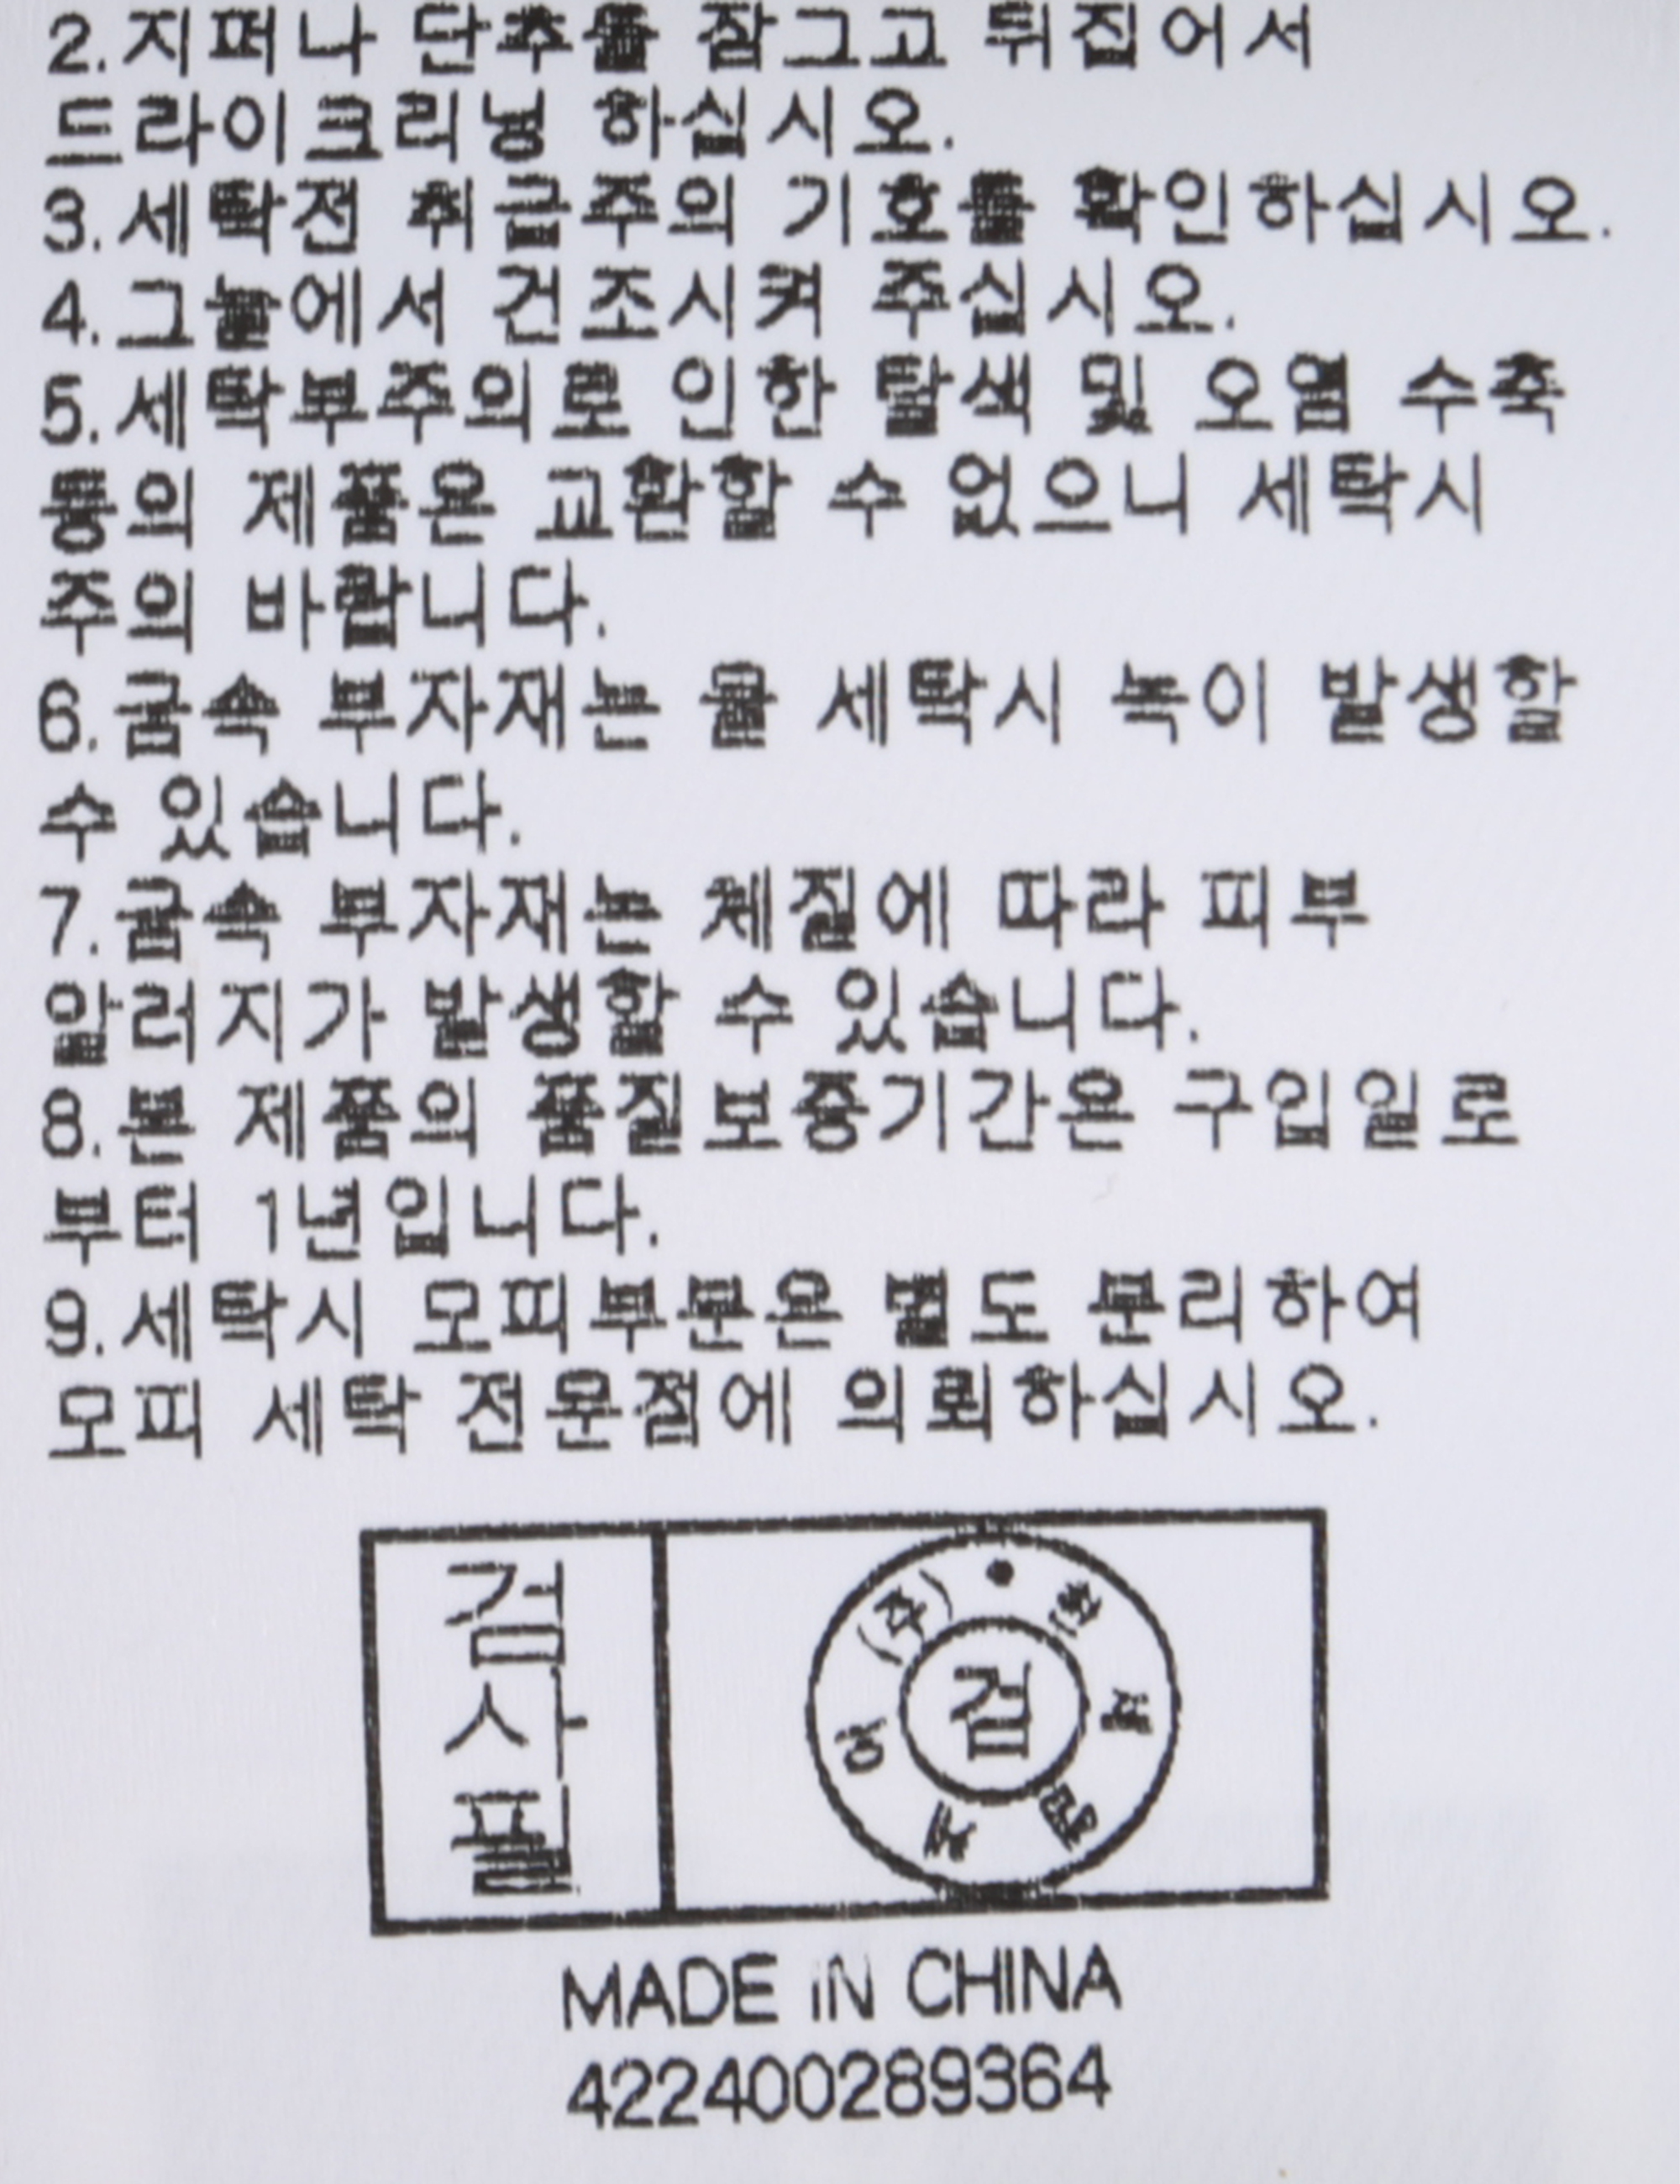 2.지퍼나 단추를 잠그고 뒤집어서
드라이크리닝 하십시오.
3.세탁전 취급주의 기호를 확인하십시오.
4.그늘에서 건조시켜 주십시오.
5.세탁부주의로 인한 탈색 및 오염 수축
등의 제품은 교환할 수 없으니 세탁시
주의 바랍니다.
6.금속 부자재는 물 세탁시 녹이 발생할
수 있습니다.
7.금속 부자재는 체질에 따라 피부
알러지가 발생할 수 있습니다.
8.본 제품의 품질보증기간은 구입일로
부터 1년입니다.
9.세탁시 모피부분은 별도 분리하여
모피 세탁 전문점에 의뢰하십시오.
검사필
(주)
검
MADE IN CHINA
422400289364